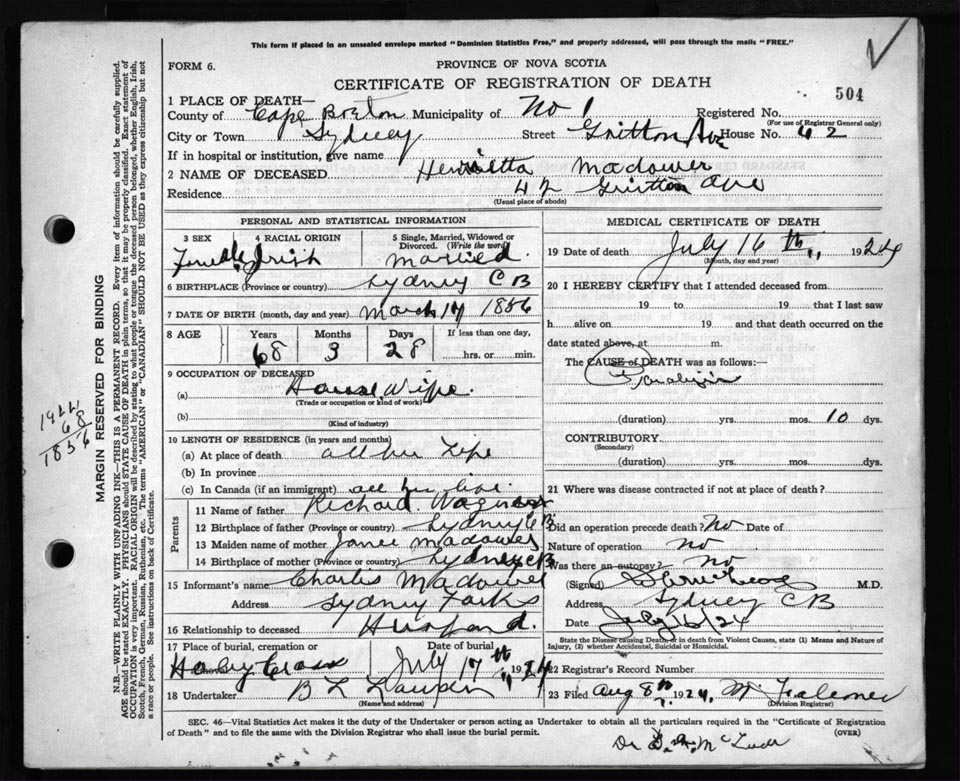 This form if placed in an unsealed envelope marked "Dominion Statistics Free," and properly addressed, will pass through the mails "FREE."
FORM 6.
PROVINCE OF NOVA SCOTIA
CERTIFICATE OF REGISTRATION OF DEATH
504
1 PLACE OF DEATH—
County of Cape Breton Municipality of No 1 Registered No.
(For use of Registrar General only)
City or Town Sydney Street Gritton Ave House No. 42
If in hospital or institution, give name
2 NAME OF DECEASED Henrietta Madower
Residence 42 Gritton Ave
(Usual place of abode)
PERSONAL AND STATISTICAL INFORMATION
3 SEX 4 RACIAL ORIGIN 5 Single, Married, Widowed or Divorced. (Write the word)
Female Irish Married.
6 BIRTHPLACE (Province or country) Sydney C B
7 DATE OF BIRTH (month, day and year) March 17 1856
8 AGE Years Months Days If less than one day,
68 3 28 hrs. or min.
9 OCCUPATION OF DECEASED
(a) House Wife
(Trade or occupation or kind of work)
(b)
(Kind of industry)
10 LENGTH OF RESIDENCE (in years and months)
(a) At place of death all her Life
(b) In province
(c) In Canada (if an immigrant) all her live
Parents
11 Name of father Richard
12 Birthplace of father (Province or country) Sydney C B
13 Maiden name of mother Madower
14 Birthplace of mother (Province or country) Sydney C B
15 Informant's name Charles Madower
Address Sydney Forks
16 Relationship to deceased Husband.
17 Place of burial, cremation or removal Date of burial
Holy Cross July 17th 1924
18 Undertaker B L
(Name and address)
MEDICAL CERTIFICATE OF DEATH
19 Date of death July 16th, 1924
(Month, day and year)
20 I HEREBY CERTIFY that I attended deceased from
19 to 19 that I last saw
h alive on 19 and that death occurred on the
date stated above, at m.
The CAUSE of DEATH was as follows:
Paralysis
(duration) yrs. mos. 10 dys.
CONTRIBUTORY
(Secondary)
(duration) yrs. mos. dys.
21 Where was disease contracted if not at place of death?
Did an operation precede death? No Date of
Nature of operation no
Was there an autopsy? No
(Signed) M.D.
Address Sydney C B
Date July 16/24
State the Disease causing Death, or in death from Violent Causes, state (1) Means and Nature of Injury, (2) whether Accidental, Suicidal or Homicidal.
22 Registrar's Record Number
23 Filed Aug 8th 1924,
(Division Registrar)
SEC. 46—Vital Statistics Act makes it the duty of the Undertaker or person acting as Undertaker to obtain all the particulars required in the "Certificate of Registration
of Death" and to file the same with the Division Registrar who shall issue the burial permit.
(OVER)
MARGIN RESERVED FOR BINDING
N.B.—WRITE PLAINLY WITH UNFADING INK—THIS IS A PERMANENT RECORD. Every item of information should be carefully supplied.
AGE should be stated EXACTLY. PHYSICIANS should STATE CAUSE OF DEATH in plain terms, so that it may be properly classified. Exact statement of
OCCUPATION is very important. RACIAL ORIGIN will be described by stating to what people or tongue the deceased person belonged, whether English, Irish,
Scotch, French, German, Russian, Ruthenian, etc. The terms "AMERICAN" or "CANADIAN" SHOULD NOT BE USED as they express citizenship but not
a race or people. See instructions on back of Certificate.
68
1856